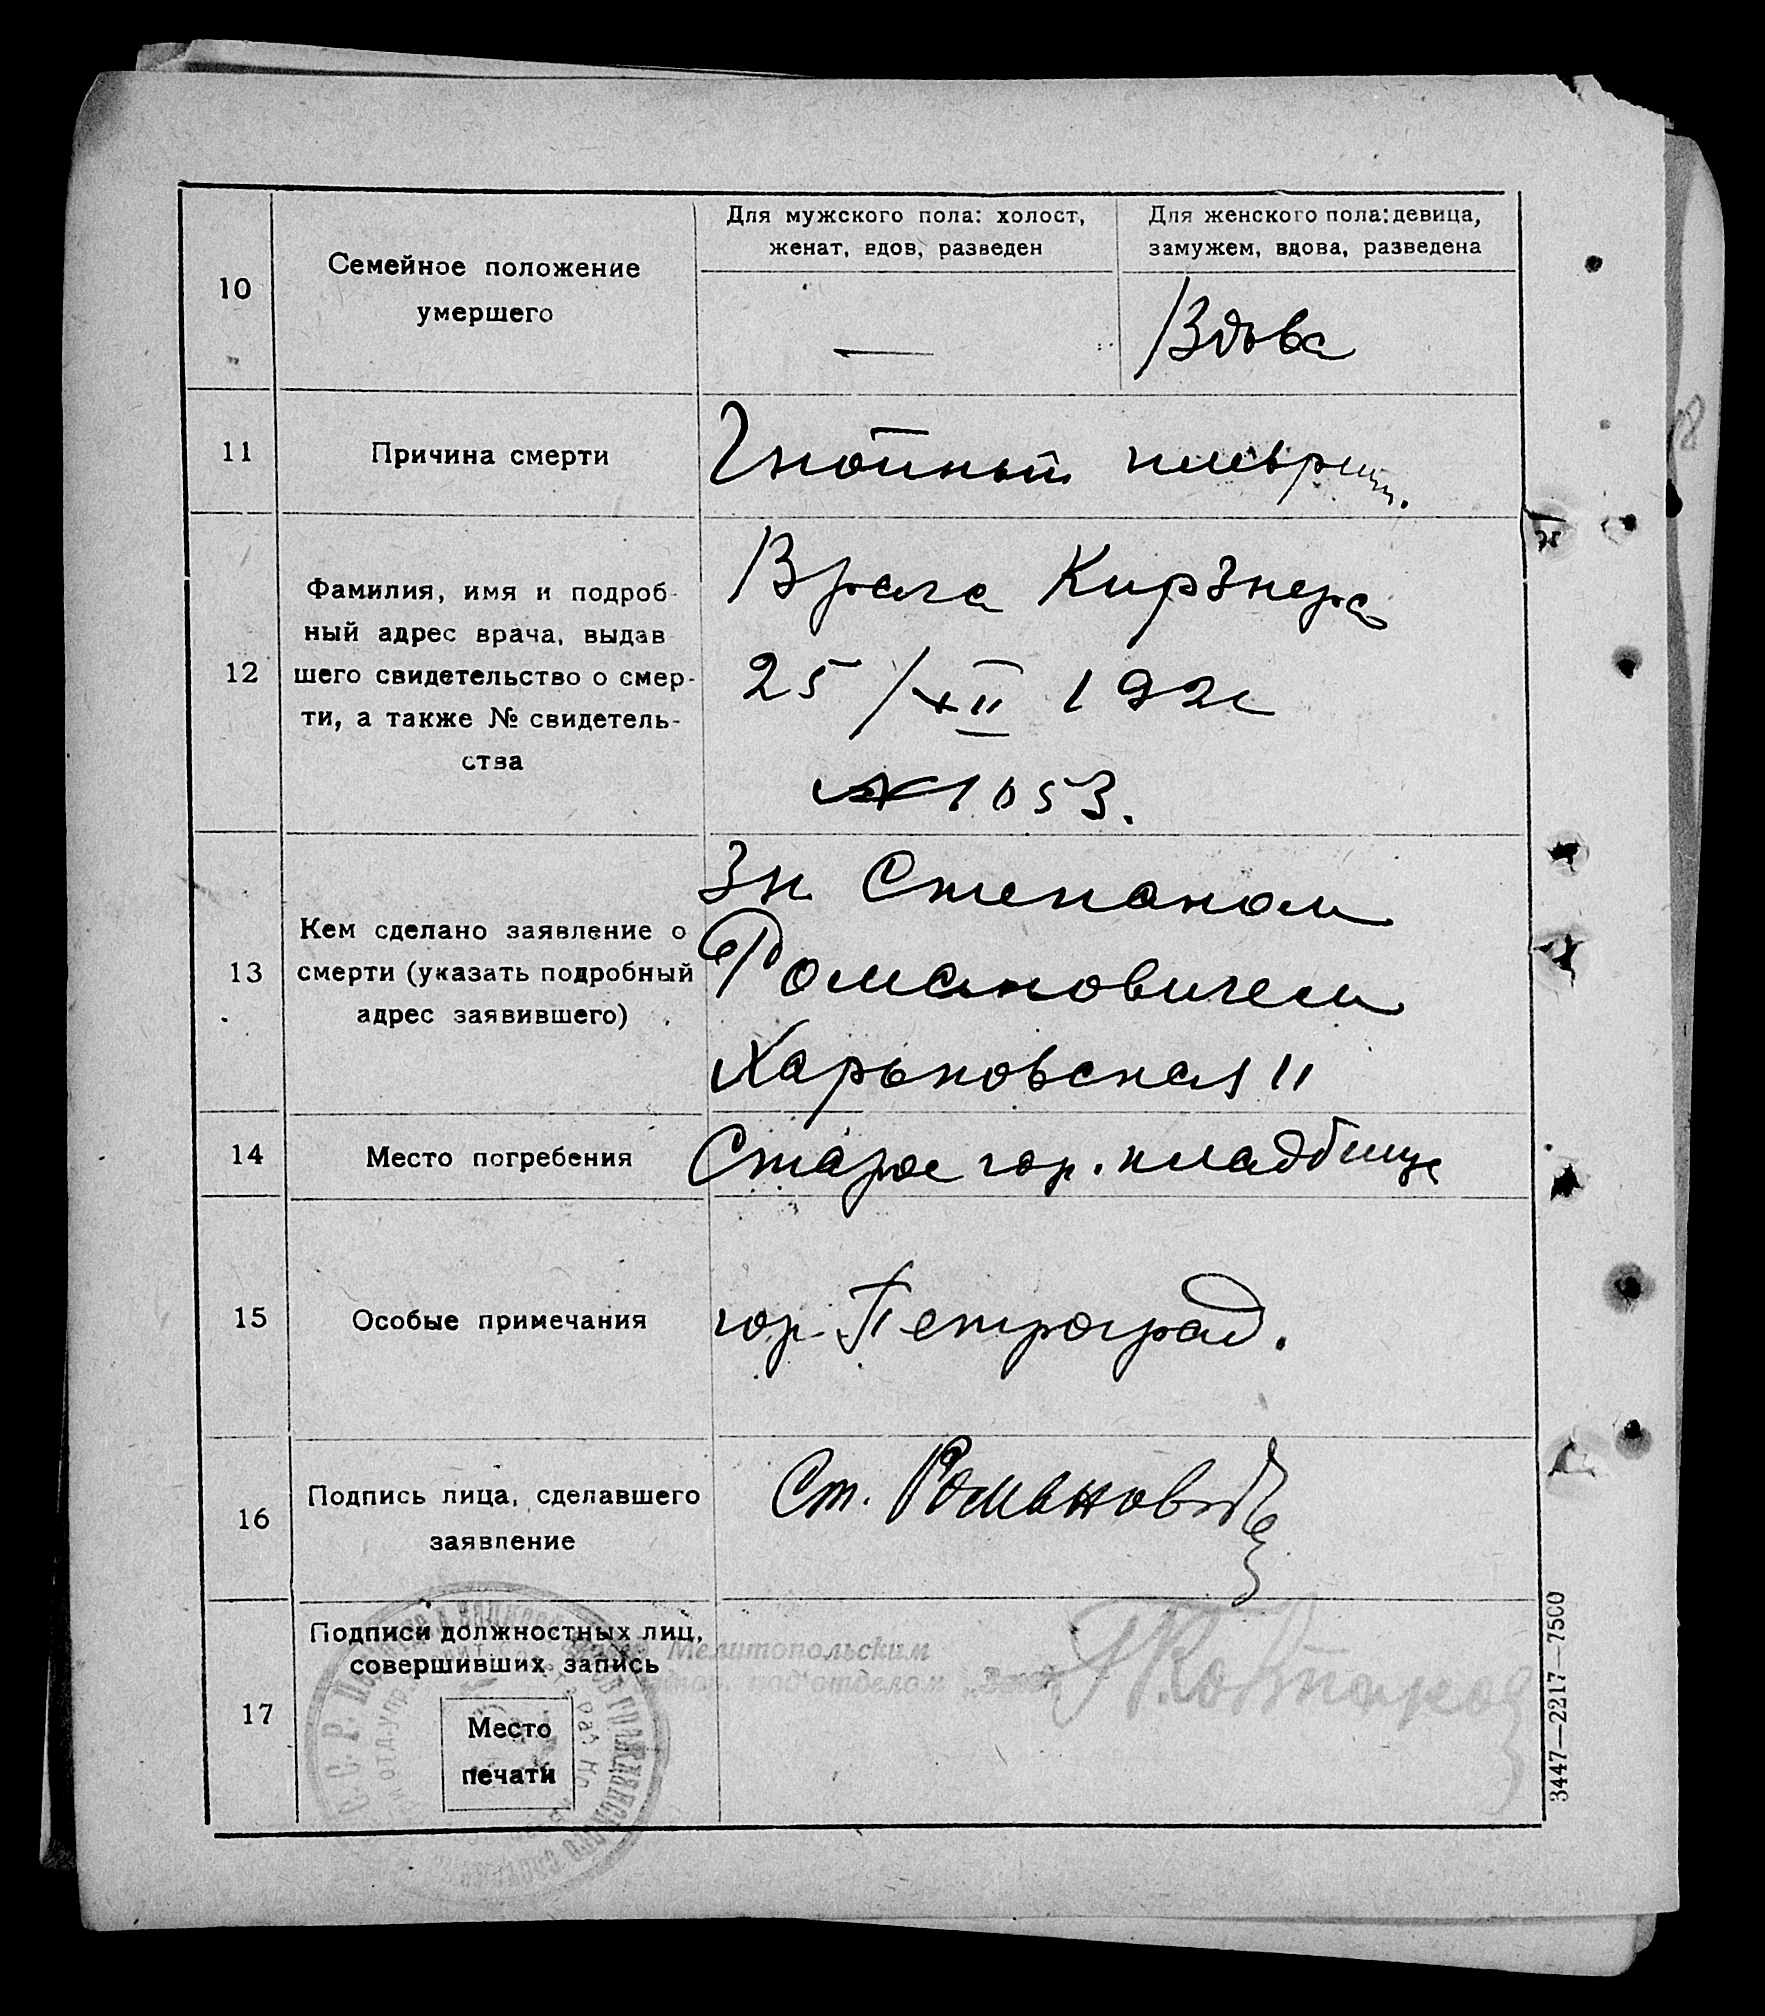 Для мужского пола: холост,
женат, вдов, разведен
Для женского пола: девица,
замужем, вдова, разведена
10
Семейное положение
умершего
—
Вдова
11
Причина смерти
Гнойный плеврит.
12
Фамилия, имя и подроб-
ный адрес врача, выдав
шего свидетельство о смер-
ти, а также № свидетель-
ства
Врача Кирзнера
25/XII 192
№ 1053.
13
Кем сделано заявление о
смерти (указать подробный
адрес заявившего)
Зн. Степаном
Романовичем
Харьковская 11
14
Место погребения
Старое гор. кладбище
15
Особые примечания
гор. Петроград.
16
Подпись лица, сделавшего
заявление
Ст. Романович
17
Подписи должностных лиц,
совершивших запись
Место
печати
Мелитопольским
под'отделом
3447—2217—7500